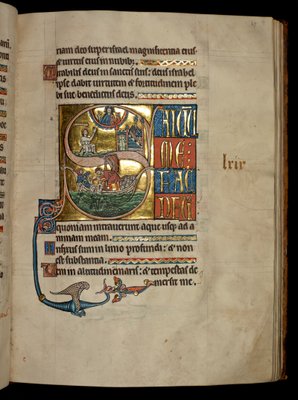 riam deo super israel magnificentia eius
& virtus eius in nubibus
Mirabilis deus in sanctis suis: deus israhel
ipse dabit virtutem & fortitudinem ple
bi sue benedictus deus.
SALVUM
ME
FAC
DEUS
quoniam intraverunt aque usque ad a
nimam meam.
Infixus sum in limo profundi: & non
est substantia.
Veni in altitudinem maris: & tempestas de
mersit me.
lxix